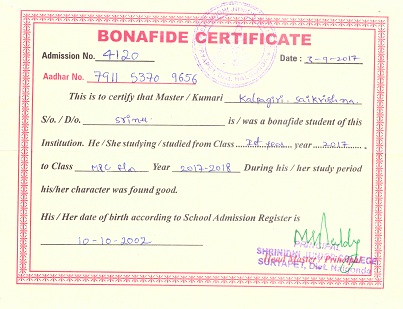 BONAFIDE CERTIFICATE
Admission No. 4120 Date : 3-9-2017
Aadhar No. 7911 5370 9656
This is to certify that Master / Kumari Kalpagiri Saikrishna
S/o. / D/o. Srinu is / was a bonafide student of this
Institution. He / She studying / studied from Class Ist year year 2017
to Class MPC Year 2017-2018 During his / her study period
his/her character was found good.
His / Her date of birth according to School Admission Register is
10-10-2002
PRINCIPAL
Head Master / Principal
SURYAPET, Dist. Nalgonda